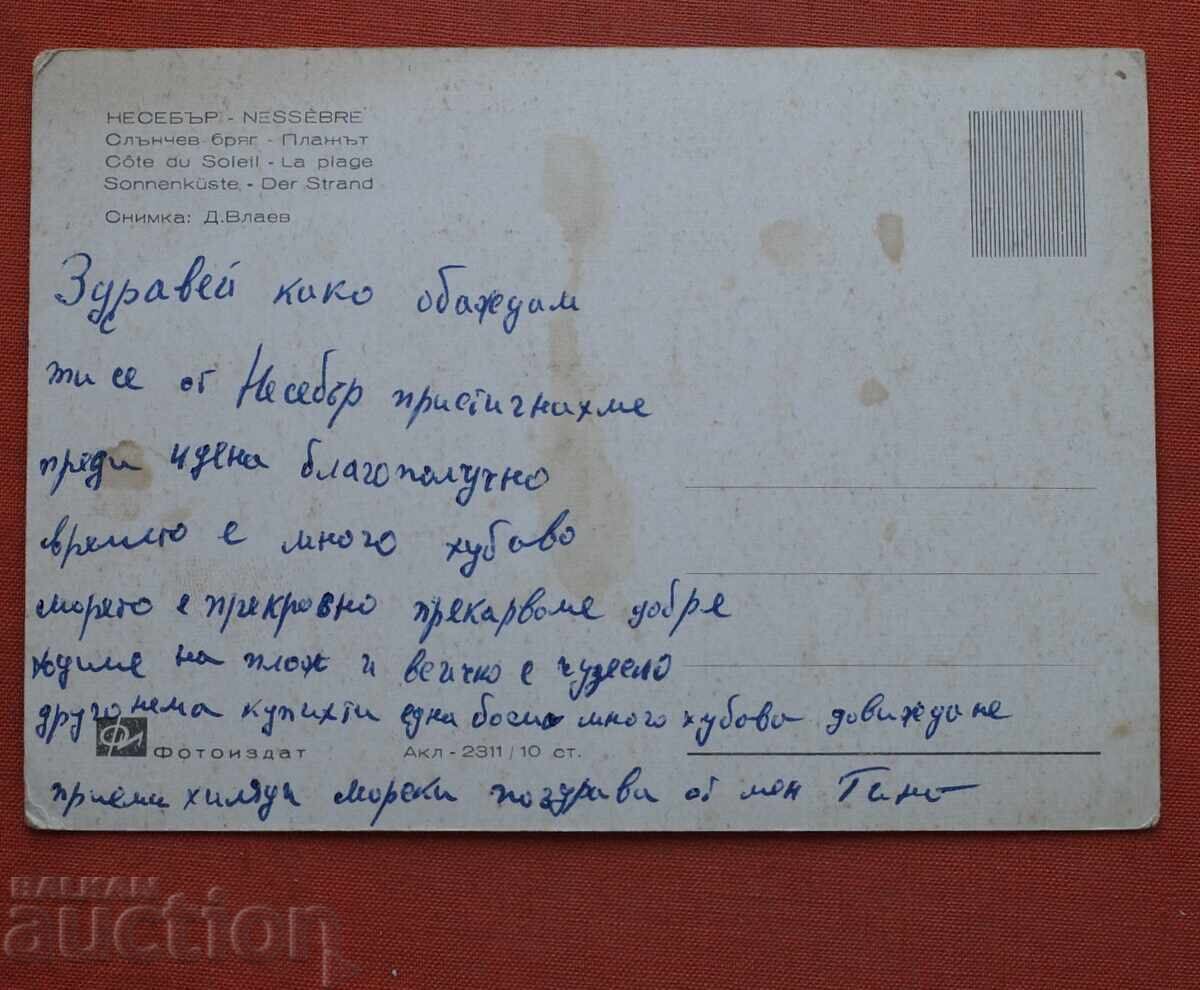 НЕСЕБЪР - NESSÈBRE
Слънчев бряг - Плажът
Côte du Soleil - La plage
Sonnenküste - Der Strand
Снимка: Д.Влаев
Здравей како обаждам
ти се от Несебър пристигнахме
преди 4 дена благополучно
времето е много хубаво
морето е прекрасно прекарваме добре
ходиме на плаж и вечко е чудесно
друго нема купихти една много хубава довиждане
Фотоиздат
Акл - 2311 / 10 ст.
приеми хиляди морски поздрава от мен
BALKAN
auction